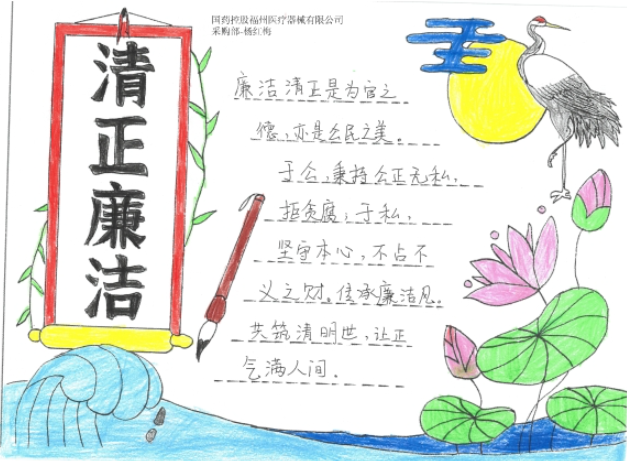 国药控股福州医疗器械有限公司
采购部-杨红梅
清正廉洁
廉洁清正是为官之
德，亦是公民之美。
于公，秉持公正无私，
拒贪腐；于私，
坚守本心，不占不
义之财。传承廉洁风。
共筑清明世，让正
气满人间。